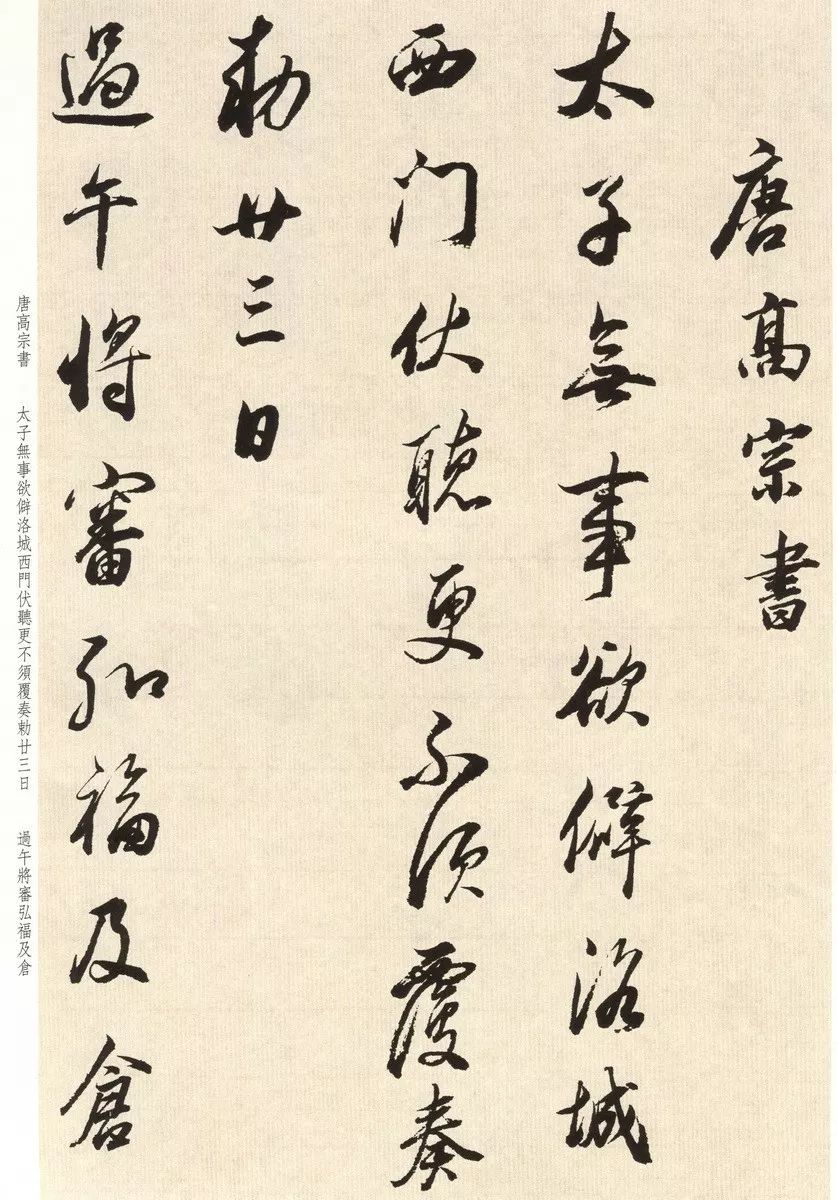 唐高宗書
太子無事欲僻洛城
西門伏聽更不須覆奏
勅廿三日
過午將審弘福及倉
唐高宗書 太子無事欲僻洛城西門伏聽更不須覆奏勅廿三日 過午將審弘福及倉